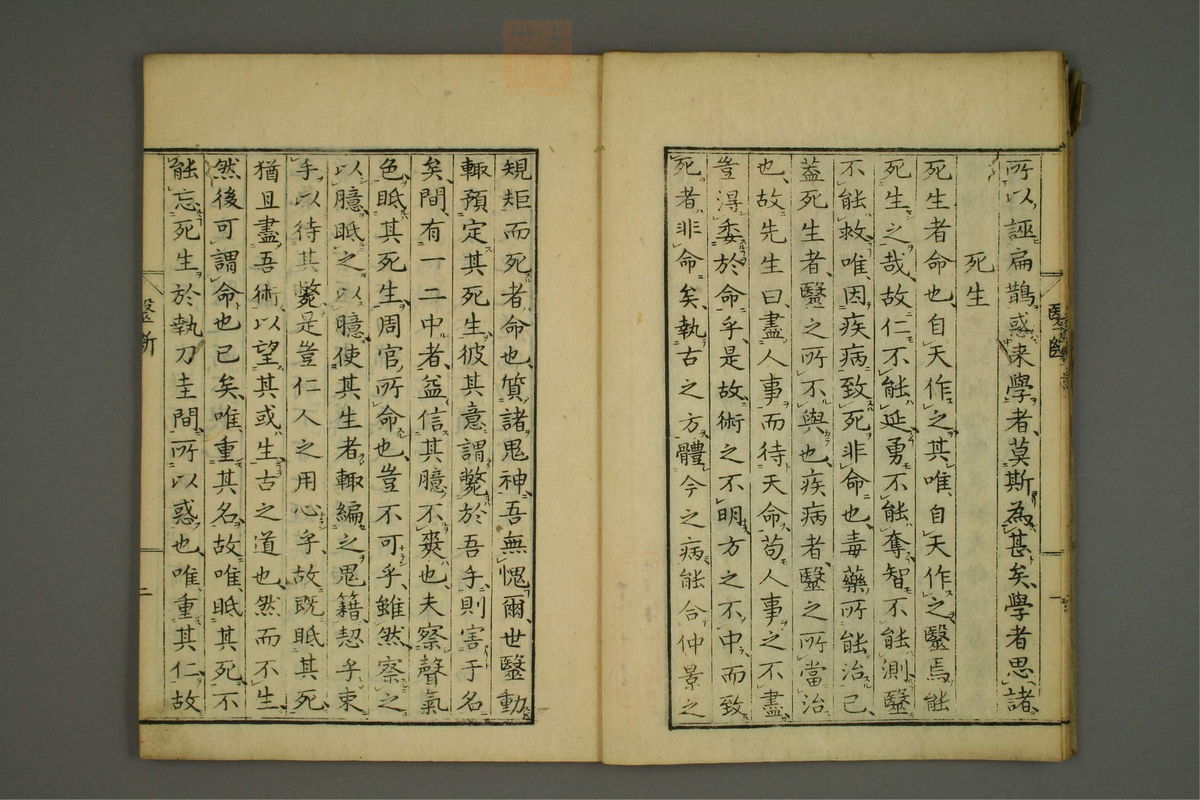 所以誣扁鵲惑来學者莫斯為甚矣學者思諸
死生
死生者命也自天作之其唯自天作之毉焉能
死生之哉故仁不能延勇不能奪智不能測毉
不能救唯因疾病致死非命也毒藥所能治已
蓋死生者毉之所不與也疾病者毉之所當治
也故先生曰盡人事而待天命苟人事之不盡
豈得委於命乎是故術之不明方之不中而致
死者非命矣執古之方體今之病能合仲景之
規矩而死者命也質諸鬼神吾無愧爾世毉動
輙預定其死生彼其意謂斃於吾手則害于名
矣間有一二中者益信其臆不爽也夫察聲氣
色眡其死生周官所命也豈不可乎雖然察之
以臆眡之以臆使其生者輙編之鬼籍恝乎束
手以待其斃是豈仁人之用心乎故既眡其死
猶且盡吾術以望其或生古之道也然而不生
然後可謂命也已矣唯重其名故唯眡其死不
能忘死生於執刀圭間所以惑也唯重其仁故
毉断
二